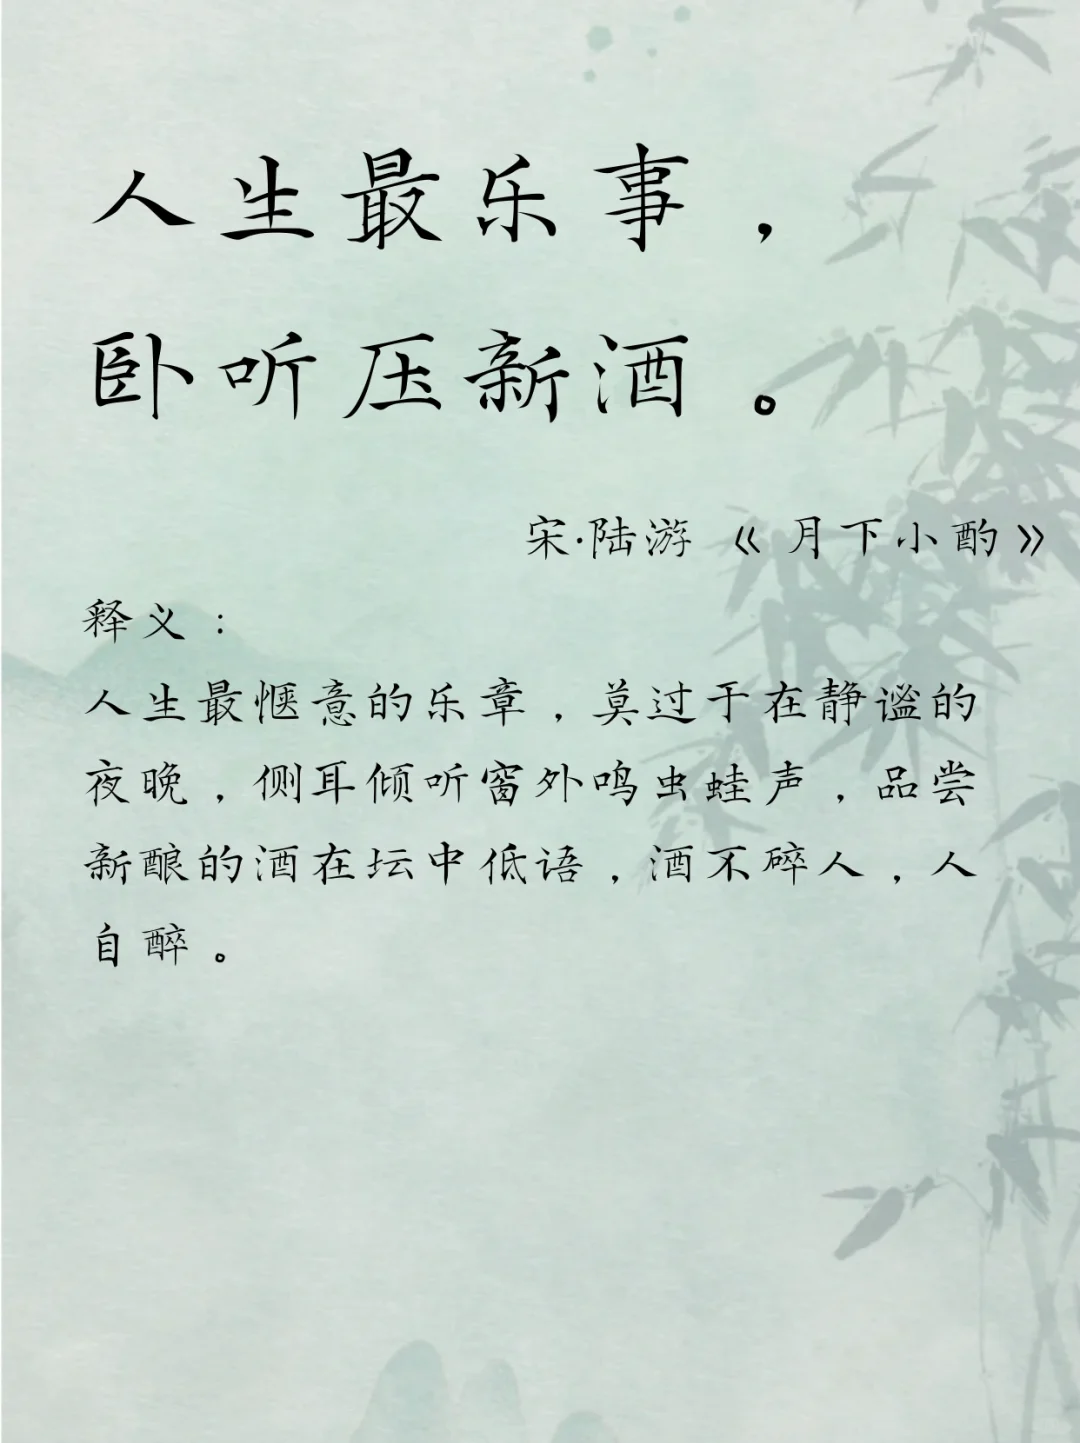 人生最乐事，
卧听压新酒。
宋·陆游《月下小酌》
释义：
人生最惬意的乐章，莫过于在静谧的
夜晚，侧耳倾听窗外鸣虫蛙声，品尝
新酿的酒在坛中低语，酒不碎人，人
自醉。